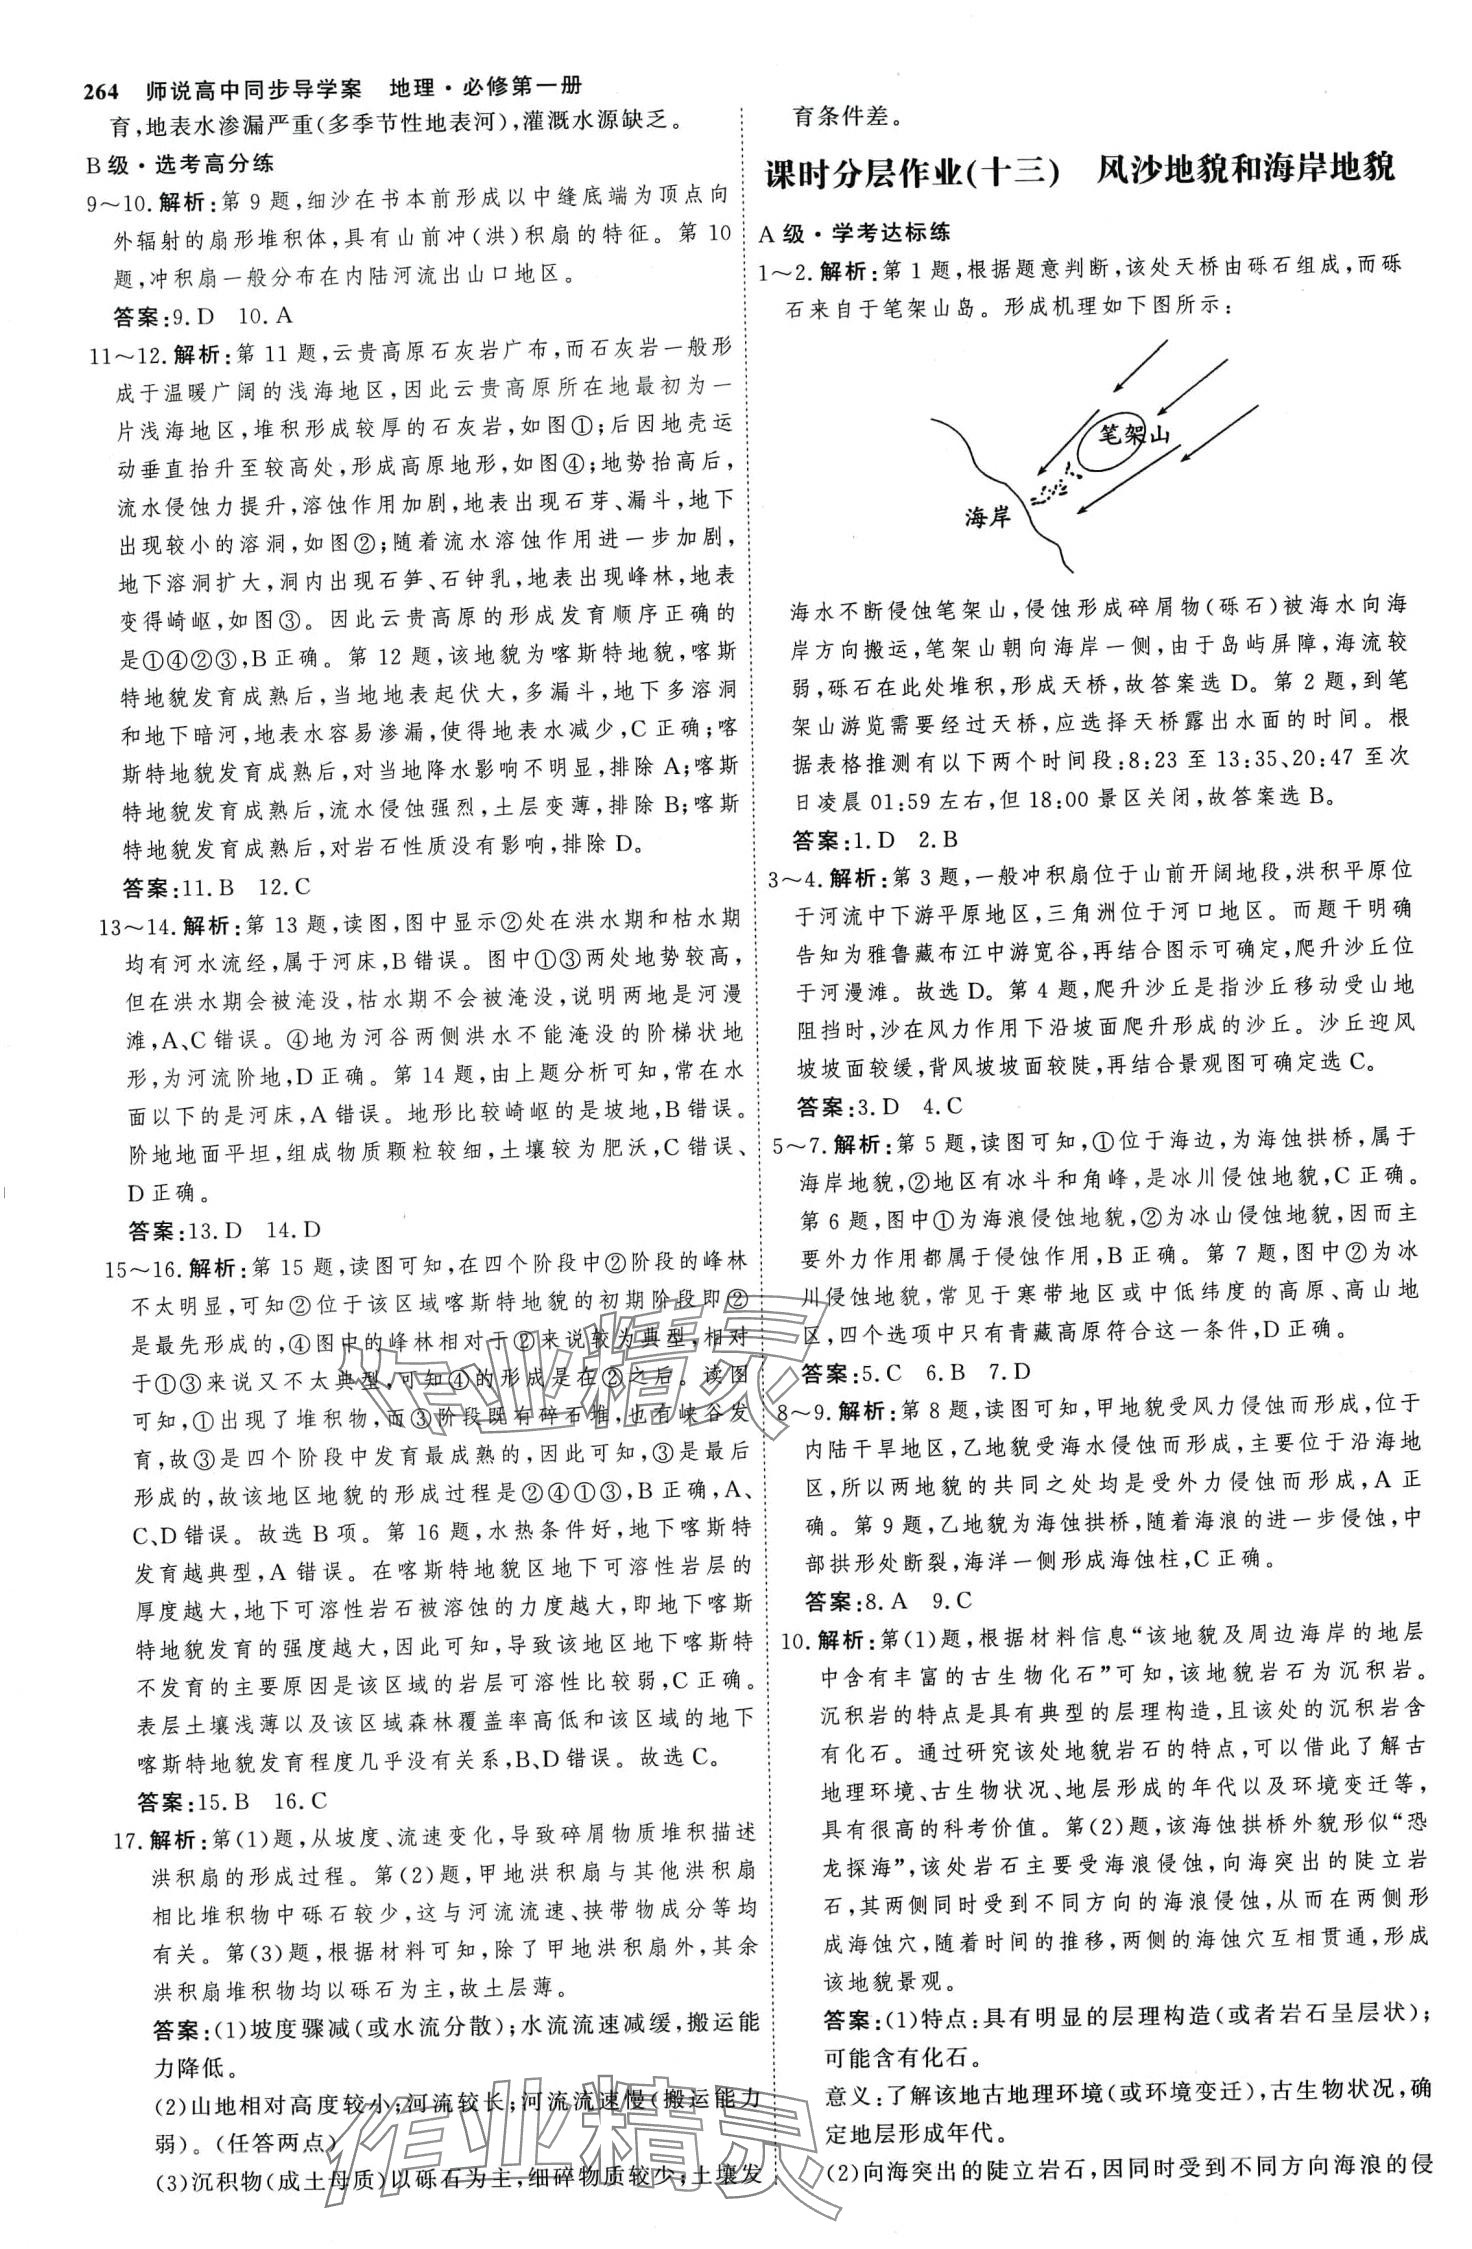 264 师说高中同步导学案 地理·必修第一册
育,地表水渗漏严重(多季节性地表河),灌溉水源缺乏。
B 级·选考高分练
9～10.解析:第 9 题,细沙在书本前形成以中缝底端为顶点向
外辐射的扇形堆积体,具有山前冲(洪)积扇的特征。第 10
题,冲积扇一般分布在内陆河流出山口地区。
答案:9.D 10.A
11～12.解析:第 11 题,云贵高原石灰岩广布,而石灰岩一般形
成于温暖广阔的浅海地区,因此云贵高原所在地最初为一
片浅海地区,堆积形成较厚的石灰岩,如图①;后因地壳运
动垂直抬升至较高处,形成高原地形,如图④;地势抬高后,
流水侵蚀力提升,溶蚀作用加剧,地表出现石芽、漏斗,地下
出现较小的溶洞,如图②;随着流水溶蚀作用进一步加剧,
地下溶洞扩大,洞内出现石笋、石钟乳,地表出现峰林,地表
变得崎岖,如图③。因此云贵高原的形成发育顺序正确的
是①④②③,B正确。第 12 题,该地貌为喀斯特地貌,喀斯
特地貌发育成熟后,当地地表起伏大,多漏斗,地下多溶洞
和地下暗河,地表水容易渗漏,使得地表水减少,C正确;喀
斯特地貌发育成熟后,对当地降水影响不明显,排除 A;喀斯
特地貌发育成熟后,流水侵蚀强烈,土层变薄,排除 B;喀斯
特地貌发育成熟后,对岩石性质没有影响,排除 D。
答案:11.B 12.C
13～14.解析:第 13 题,读图,图中显示②处在洪水期和枯水期
均有河水流经,属于河床,B错误。图中①③两处地势较高,
但在洪水期会被淹没,枯水期不会被淹没,说明两地是河漫
滩,A、C 错误。④地为河谷两侧洪水不能淹没的阶梯状地
形,为河流阶地,D正确。第 14 题,由上题分析可知,常在水
面以下的是河床,A 错误。地形比较崎岖的是坡地,B错误。
阶地地面平坦,组成物质颗粒较细,土壤较为肥沃,C 错误、
D 正确。
答案:13.D 14.D
15～16.解析:第 15 题,读图可知,在四个阶段中②阶段的峰林
不太明显,可知②位于该区域喀斯特地貌的初期阶段即②
是最先形成的,④图中的峰林相对于②来说较为典型,相对
于①③来说又不太典型,可知④的形成是在②之后。读图
可知,①出现了堆积物,而③阶段既有碎石堆,也有峡谷发
育,故③是四个阶段中发育最成熟的,因此可知,③是最后
形成的,故该地区地貌的形成过程是②④①③,B正确,A、
C、D错误。故选 B 项。第 16 题,水热条件好,地下喀斯特
发育越典型,A 错误。在喀斯特地貌区地下可溶性岩层的
厚度越大,地下可溶性岩石被溶蚀的力度越大,即地下喀斯
特地貌发育的强度越大,因此可知,导致该地区地下喀斯特
不发育的主要原因是该区域的岩层可溶性比较弱,C正确。
表层土壤浅薄以及该区域森林覆盖率高低和该区域的地下
喀斯特地貌发育程度几乎没有关系,B、D错误。故选 C。
答案:15.B 16.C
17.解析:第(1)题,从坡度、流速变化,导致碎屑物质堆积描述
洪积扇的形成过程。第(2)题,甲地洪积扇与其他洪积扇
相比堆积物中砾石较少,这与河流流速、挟带物成分等均
有关。第(3)题,根据材料可知,除了甲地洪积扇外,其余
洪积扇堆积物均以砾石为主,故土层薄。
答案:(1)坡度骤减(或水流分散);水流流速减缓,搬运能
力降低。
(2)山地相对高度较小;河流较长;河流流速慢(搬运能力
弱)。(任答两点)
(3)沉积物(成土母质)以砾石为主,细碎物质较少;土壤发
育条件差。
课时分层作业(十三) 风沙地貌和海岸地貌
A 级·学考达标练
1～2.解析:第 1 题,根据题意判断,该处天桥由砾石组成,而砾
石来自于笔架山岛。形成机理如下图所示:
笔架山
海岸
海水不断侵蚀笔架山,侵蚀形成碎屑物(砾石)被海水向海
岸方向搬运,笔架山朝向海岸一侧,由于岛屿屏障,海流较
弱,砾石在此处堆积,形成天桥,故答案选 D。第 2 题,到笔
架山游览需要经过天桥,应选择天桥露出水面的时间。根
据表格推测有以下两个时间段:8:23 至 13:35、20:47 至次
日凌晨 01:59 左右,但 18:00 景区关闭,故答案选 B。
答案:1.D 2.B
3～4.解析:第 3 题,一般冲积扇位于山前开阔地段,洪积平原位
于河流中下游平原地区,三角洲位于河口地区。而题干明确
告知为雅鲁藏布江中游宽谷,再结合图示可确定,爬升沙丘位
于河漫滩。故选 D。第 4 题,爬升沙丘是指沙丘移动受山地
阻挡时,沙在风力作用下沿坡面爬升形成的沙丘。沙丘迎风
坡坡面较缓,背风坡坡面较陡,再结合景观图可确定选 C。
答案:3.D 4.C
5～7.解析:第 5 题,读图可知,①位于海边,为海蚀拱桥,属于
海岸地貌,②地区有冰斗和角峰,是冰川侵蚀地貌,C正确。
第 6 题,图中①为海浪侵蚀地貌,②为冰山侵蚀地貌,因而主
要外力作用都属于侵蚀作用,B 正确。第 7 题,图中②为冰
川侵蚀地貌,常见于寒带地区或中低纬度的高原、高山地
区,四个选项中只有青藏高原符合这一条件,D正确。
答案:5.C 6.B 7.D
8～9.解析:第 8 题,读图可知,甲地貌受风力侵蚀而形成,位于
内陆干旱地区,乙地貌受海水侵蚀而形成,主要位于沿海地
区,所以两地貌的共同之处均是受外力侵蚀而形成,A 正
确。第 9 题,乙地貌为海蚀拱桥,随着海浪的进一步侵蚀,中
部拱形处断裂,海洋一侧形成海蚀柱,C正确。
答案:8.A 9.C
10.解析:第(1)题,根据材料信息“该地貌及周边海岸的地层
中含有丰富的古生物化石”可知,该地貌岩石为沉积岩。
沉积岩的特点是具有典型的层理构造,且该处的沉积岩含
有化石。通过研究该处地貌岩石的特点,可以借此了解古
地理环境、古生物状况、地层形成的年代以及环境变迁等,
具有很高的科考价值。第(2)题,该海蚀拱桥外貌形似“恐
龙探海”,该处岩石主要受海浪侵蚀,向海突出的陡立岩
石,其两侧同时受到不同方向的海浪侵蚀,从而在两侧形
成海蚀穴,随着时间的推移,两侧的海蚀穴互相贯通,形成
该地貌景观。
答案:(1)特点:具有明显的层理构造(或者岩石呈层状);
可能含有化石。
意义:了解该地古地理环境(或环境变迁),古生物状况,确
定地层形成年代。
(2)向海突出的陡立岩石,因同时受到不同方向海浪的侵
作业精灵
作业精灵